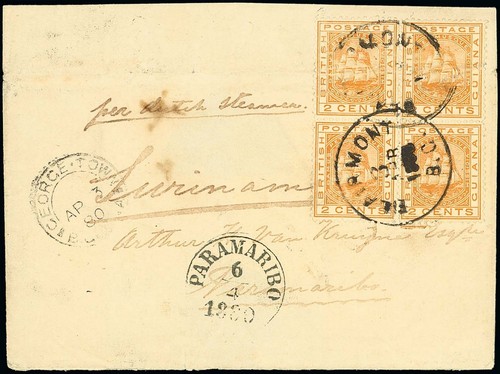 BRITISH POSTAGE GUIANA 2 CENTS
BRITISH POSTAGE GUIANA 2 CENTS
BRITISH POSTAGE GUIANA 2 CENTS
BRITISH POSTAGE GUIANA 2 CENTS
BLAIRMONT B.G.
per Dutch Steamer
GEORGE-TOWN
AP 3
80
Surinam
Arthur Van Esqre
Paramaribo
PARAMARIBO
6
4
1880